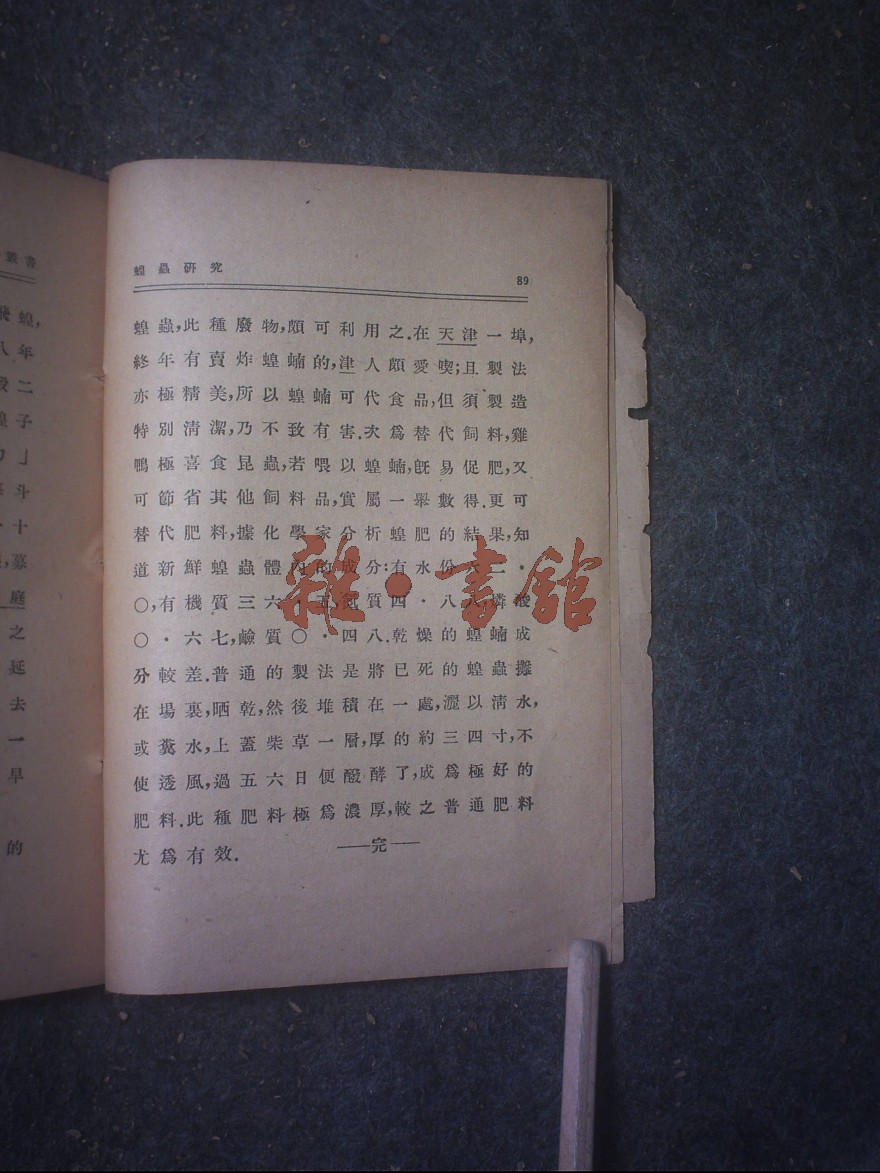 叢書
蝗蟲研究
89
蝗蟲,此種廢物,頗可利用之.在天津一埠,
終年有賣炸蝗蝻的,津人頗愛喫;且製法
亦極精美,所以蝗蝻可代食品,但須製造
特別清潔,乃不致有害.次爲替代飼料,雞
鴨極喜食昆蟲,若喂以蝗蝻,旣易促肥,又
可節省其他飼料品,實屬一舉數得.更可
替代肥料,據化學家分析蝗肥的結果,知
道新鮮蝗蟲體內的成分:有水份六二・
〇,有機質三六・五,氮質四・八八,燐酸
〇・六七,鹼質〇・四八.乾燥的蝗蝻成
分較差.普通的製法是將已死的蝗蟲攤
在場裏,晒乾,然後堆積在一處,灑以清水,
或糞水,上蓋柴草一層,厚的約三四寸,不
使透風,過五六日便醱酵了,成爲極好的
肥料.此種肥料極爲濃厚,較之普通肥料
尤爲有效.
——完——
蝗,
八年
二
子
」
斗
十
庭
之
延
去
一
早
的
雜・書館